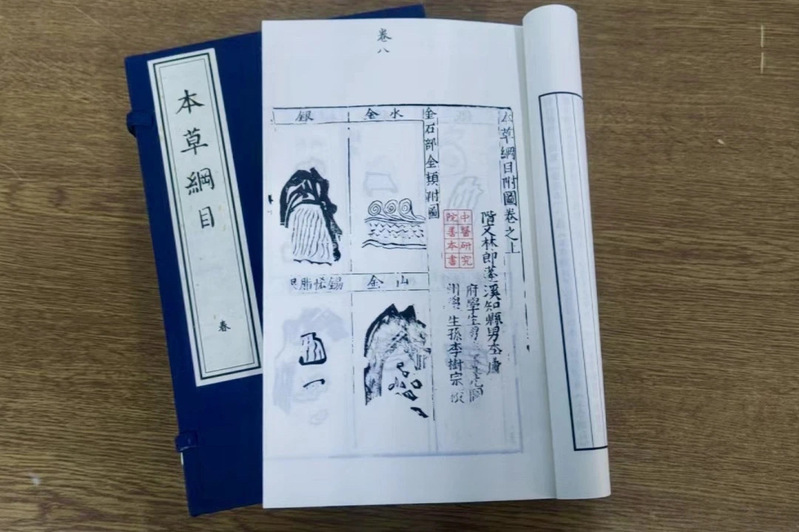 本草綱目
卷
卷八
本草綱目附圖卷之上
階文林郎蓬溪知縣男李建
府學生男李
州學生孫李樹宗
中醫研究
院善本書
金石部金類附圖
水金
山金
銀
錫恡脂